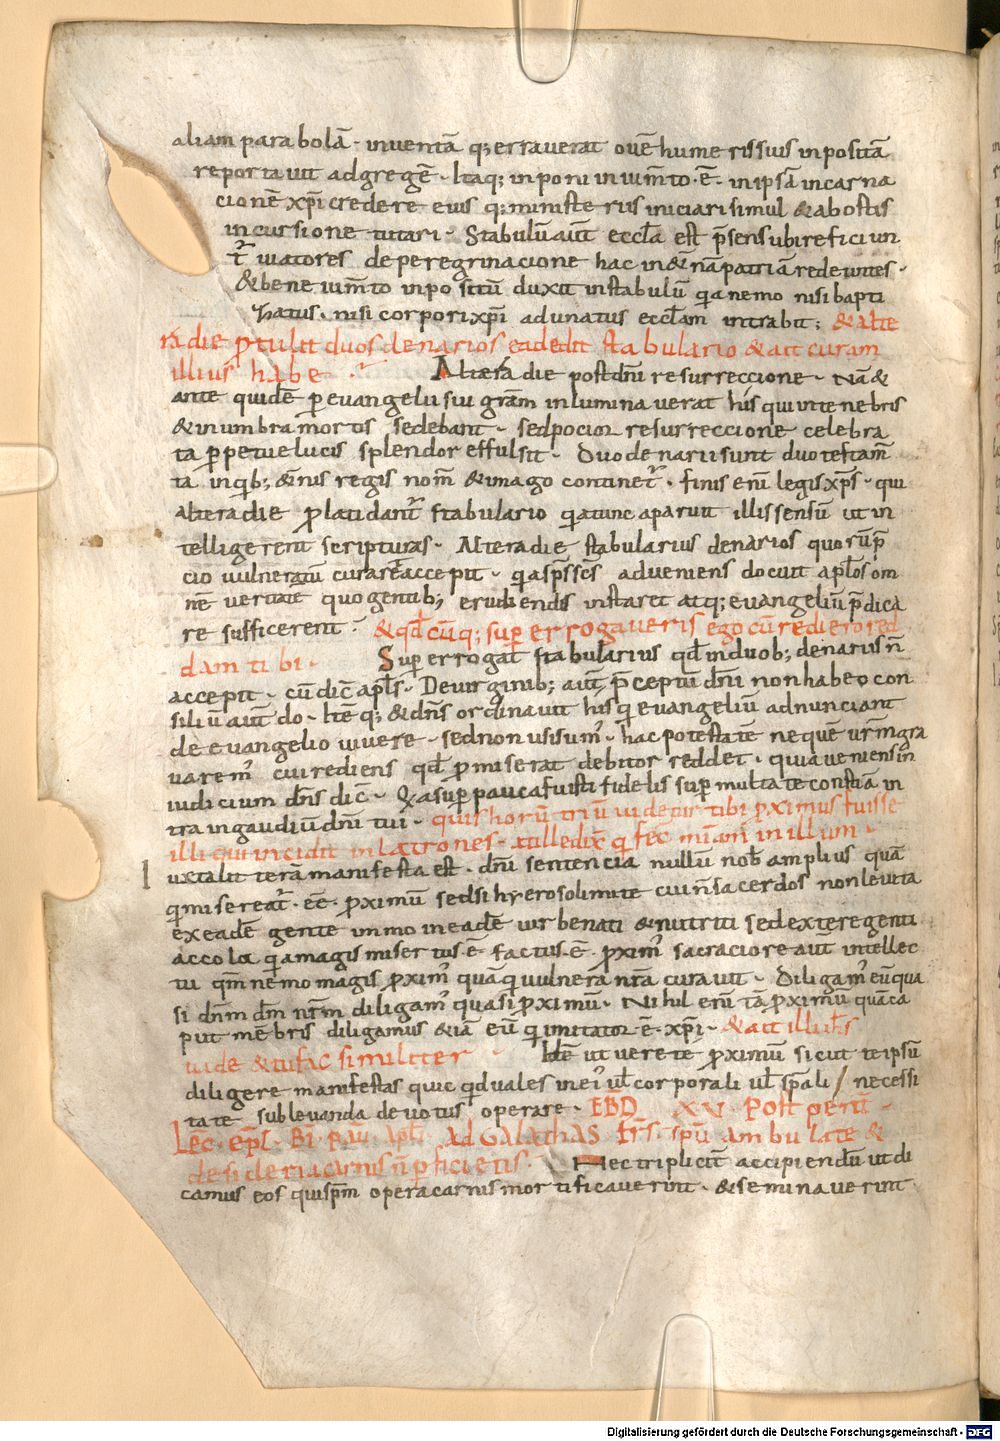 aliam parabolā · inventā q; erraverat ovē humeris suis inpositā
reportavit ad gregē · Itaq; inponi in ium̄to · ē · in ipsā incarna
cionē xp̄i credere eius q; ministeriis iniciari simul & ab ostis
incursione tutari · Stabulū aut̄ eccl̄a est p̄sens ubi reficiun
t̄ viatores de peregrinacione hac in &̄nā patriā redeuntes ·
& bene ium̄to inpositū duxit in stabulū q̄a nemo nisi bapti
zatus · nisi corpori xp̄i adunatus eccl̄am intrabit ; & alte
rā die p̄tulit duos denarios & dedit stabulario & ait curam
illius habe · Altera die post dn̄i resurreccione · Nā &
ante quidē p̄ evangelii sui gr̄am inluminaverat his qui in tenebris
& in umbra mortis sedebant · sed pocior resurreccione celebra
ta p̄petue lucis splendor effulsit · Duo denarii sunt duo testam̄
ta in q̄ib; &̄nis regis nom̄ & imago continet̄ · finis enī legis xp̄s · qui
altera die p̄lati dant̄ stabulario q̄a tunc aparuit illis sensū ut in
telligerent scripturas · Altera die stabularius denarios quorū p̄
cio vulneratū curarē accepit · q̄a sp̄s sc̄s adveniens docuit apl̄os om
nē veritatē quo gentib; erudiendis instaret atq; evangeliū p̄dica
re sufficerent · & qd̄ cūq; sup̄ errogaveris ego cū rediero red
dam tibi · Sup̄ errogat̄ stabularius qd̄ in duob; denariis n̄
accepit · cū dic̄ apl̄s · De virginib; aut̄ p̄ceptū dn̄i non habeo con
siliū aut̄ do · Itē q; & dn̄s ordinavit his q̄i evangeliū adnunciant
de evangelio vivere · sed non usi sum̄ · hac potestate ne quē vr̄m gra
varem̄ cui rediens qd̄ p̄miserat debitor reddet · quia veniens in
iudicium dn̄s dic̄ · Q̄a sup̄ pauca fuisti fidelis sup̄ multa te constā in
tra in gaudiū dn̄i tui · quis horū triū videtur tibi p̄ximus fuisse
illi qui incidit in latrones · at ille dix̄ q̄ fec̄ mīam in illum ·
uxta litterā manifesta est · dn̄i sentencia nullū nob̄ amplius quā
q̄i misereat̄ · eē · p̄ximū sed si hyerosolimite cui n̄ sacerdos non levita
ex eadē gente immo in eadē urbe nati & nutriti sed extere genti
accola q̄ia magis misertus ē factus · ē · p̄xim̄ sacraciore aut̄ intellec
tu qm̄ nemo magis p̄xim̄ quā q̄i vulnera nr̄a curavit · Diligam̄ eū qua
si dn̄m dm̄ nr̄m diligam̄ quasi p̄ximū · Nihil enī tā p̄ximū quā ca
put mēbris diligamus &iā eū q̄i imitator · ē · xp̄i · & ait illi ih̄s
vade & tu fac similiter · Itē ut vere te p̄ximū sicut te ipsū
diligere manifestas quic q̄d vales in eī vl̄ corporali vl̄ sp̄ali / necessi
tate sublevanda devotus operare · EBD XV · Post pent̄ ·
Lec · epl̄ · Bī · paū · apl̄i · Ad Galathas Fr̄s · spū ambulate &
desideria carnis n̄ p̄ficietis · Hec tripliciī accipiendū ut di
camus eos qui sp̄m opera carnis mortificaverint · & seminaverint ·
Digitalisierung gefördert durch die Deutsche Forschungsgemeinschaft - DFG